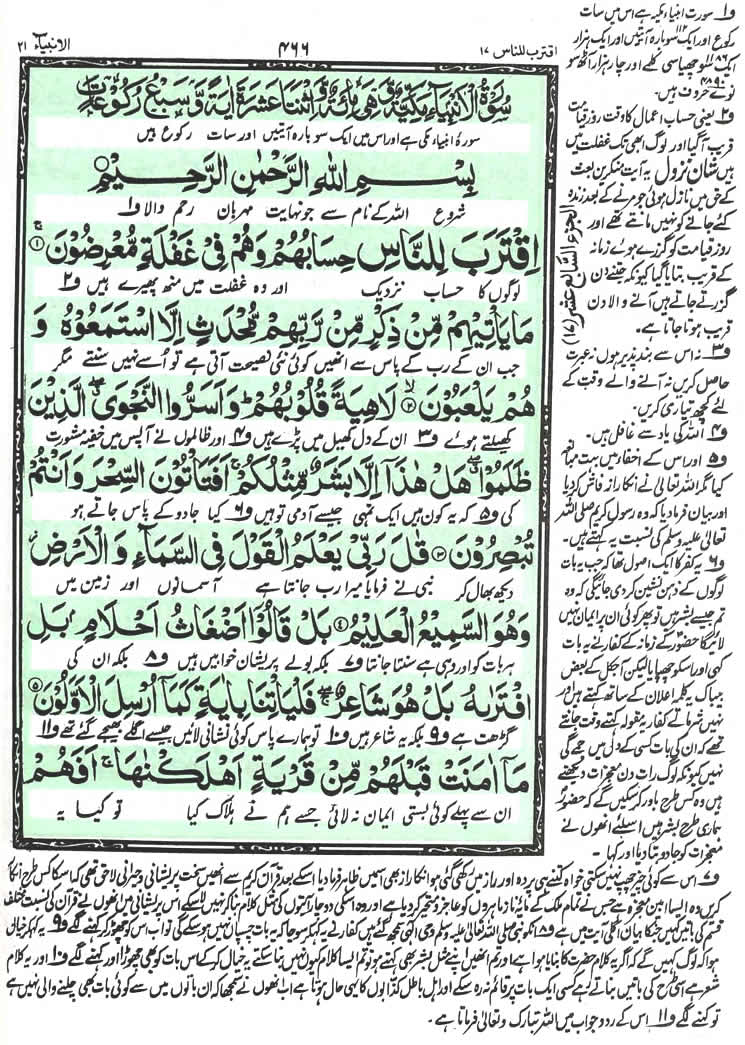 اقترب للناس ١٧
٤٦٦
الانبيآء ٢١
سُوْرَةُ الْاَنْۢبِيَآءِ مَكِّيَّةٌ وَّهِيَ مِائَةٌ وَّاثْنَتَا عَشْرَةَ اٰيَةً وَّسَبْعُ رُكُوْعَاتٍ
سورۂ انبیاء مکی ہے اور اس میں ایک سو بارہ آیتیں اور سات رکوع ہیں
بِسْمِ اللّٰهِ الرَّحْمٰنِ الرَّحِيْمِ
شروع اللہ کے نام سے جو نہایت مہربان رحم والا و۱
اِقْتَرَبَ لِلنَّاسِ حِسَابُهُمْ وَهُمْ فِيْ غَفْلَةٍ مُّعْرِضُوْنَ ۝١
لوگوں کا حساب نزدیک اور وہ غفلت میں منھ پھیرے ہیں و۲
مَا يَاْتِيْهِمْ مِّنْ ذِكْرٍ مِّنْ رَّبِّهِمْ مُّحْدَثٍ اِلَّا اسْتَمَعُوْهُ وَ
جب ان کے رب کے پاس سے انھیں کوئی نئی نصیحت آتی ہے تو اُسے نہیں سنتے مگر
هُمْ يَلْعَبُوْنَ ۝٢ لَاهِيَةً قُلُوْبُهُمْ وَاَسَرُّوا النَّجْوَى الَّذِيْنَ
کھیلتے ہوئے و۳ ان کے دل کھیل میں پڑے ہیں و۴ اور ظالموں نے آپس میں خفیہ مشورت
ظَلَمُوْا هَلْ هٰذَآ اِلَّا بَشَرٌ مِّثْلُكُمْ اَفَتَاْتُوْنَ السِّحْرَ وَاَنْتُمْ
کی و۵ کہ یہ کون ہیں ایک تمہی جیسے آدمی تو ہیں و۶ کیا جادو کے پاس جاتے ہو
تُبْصِرُوْنَ ۝٣ قٰلَ رَبِّيْ يَعْلَمُ الْقَوْلَ فِي السَّمَآءِ وَالْاَرْضِ
دیکھ بھال کر نبی نے فرمایا میرا رب جانتا ہے آسمانوں اور زمین میں
وَهُوَ السَّمِيْعُ الْعَلِيْمُ ۝٤ بَلْ قَالُوْٓا اَضْغَاثُ اَحْلَامٍۭ بَلِ
ہر بات کو اور وہی ہے سنتا جانتا و۷ بلکہ بولے پریشان خوابیں ہیں و۸ بلکہ ان کی
افْتَرٰىهُ بَلْ هُوَ شَاعِرٌ فَلْيَاْتِنَا بِاٰيَةٍ كَمَآ اُرْسِلَ الْاَوَّلُوْنَ ۝٥
گڑھت ہے و۹ بلکہ یہ شاعر ہیں و۱۰ تو ہمارے پاس کوئی نشانی لائیں جیسے اگلے بھیجے گئے تھے و۱۱
مَآ اٰمَنَتْ قَبْلَهُمْ مِّنْ قَرْيَةٍ اَهْلَكْنٰهَا اَفَهُمْ
ان سے پہلے کوئی بستی ایمان نہ لائی جسے ہم نے ہلاک کیا تو کیا یہ
الجزء السابع عشر (١٧)
و۱ سورت انبیاء مکیہ ہے اس میں سات
رکوع اور ایک سو بارہ ۱۱۲ آیتیں اور ایک ہزار
ایک سو چھیاسی ۱۱۸۶ کلمے اور چار ہزار آٹھ سو
نوے ۴۸۹۰ حرف ہیں۔
و۲ یعنی حساب اعمال کا وقت روز قیامت
قریب آگیا اور لوگ ابھی تک غفلت میں
ہیں شان نزول یہ آیت منکرین بعث
کے حق میں نازل ہوئی جو مرنے کے بعد زندہ
کئے جانے کو نہیں مانتے تھے اور
روز قیامت کو گزرے ہوئے زمانہ
کے قریب بتایا گیا کیونکہ جتنے دن
گزرتے جاتے ہیں آنے والا دن
قریب ہوتا جاتا ہے۔
و۳ نہ اس سے پند پذیر ہوں نہ عبرت
حاصل کریں نہ آنے والے وقت کے
لئے کچھ تیاری کریں۔
و۴ اللہ کی یاد سے غافل ہیں۔
و۵ اور اس کے اخفا میں بہت مبالغہ
کیا مگر اللہ تعالیٰ نے انکا راز فاش کر دیا
اور بیان فرما دیا کہ وہ رسول کریم صلی اللہ
تعالیٰ علیہ وسلم کی نسبت یہ کہتے ہیں۔
و۶ یہ کفر کا ایک اصول تھا کہ جب یہ بات
لوگوں کے ذہن نشین کر دی جائیگی کہ وہ
تم جیسے بشر ہیں تو پھر کوئی ان پر ایمان نہیں
لائیگا حضور کے زمانہ کے کفار نے یہ بات
کہی اور اسکو چھپایا لیکن آجکل کے بعض
بیباک یہ کلمہ اعلان کے ساتھ کہتے ہیں اور
نہیں شرماتے کفار یہ مقولہ کہتے وقت جانتے
تھے کہ ان کی بات کسی کے دل میں جمے گی
نہیں کیونکہ لوگ رات دن معجزات دیکھتے
ہیں وہ کس طرح باور کر سکیں گے کہ حضور
ہماری طرح بشر ہیں اسلئے انھوں نے
معجزات کو جادو بتا دیا اور کہا۔
و۷ اس سے کوئی چیز چھپ نہیں سکتی خواہ کتنے ہی پردہ اور راز میں رکھی گئی ہو انکا راز بھی اسمیں ظاہر فرما دیا اسکے بعد قرآن کریم سے انھیں سخت پریشانی و حیرانی لاحق تھی کہ اسکا کس طرح انکار
کریں وہ ایسا بین معجزہ ہے جس نے تمام ملک کے مایہ ناز ماہروں کو عاجز و متحیر کر دیا ہے اور وہ اسکی دو چار آیتوں کی مثل کلام بنا کر نہیں لا سکے اس پریشانی میں انھوں نے قرآن کی نسبت مختلف
قسم کی باتیں کہیں جنکا بیان اگلی آیت میں ہے و۸ انکو نبی صلی اللہ تعالیٰ علیہ وسلم وحی الٰہی سمجھ گئے ہیں کفار نے یہ کہہ کر سوچا کہ یہ بات چسپاں نہیں ہو سکے گی تو اب اس کو چھوڑ کر کہنے لگے و۹ یہ کہہ کر خیال
ہوا کہ لوگ کہیں گے کہ اگر یہ کلام حضرت کا بنایا ہوا ہے اور تم انھیں اپنے مثل بشر بھی کہتے ہو تو تم ایسا کلام کیوں نہیں بنا سکتے یہ خیال کر کے اس بات کو بھی چھوڑا اور کہنے لگے و۱۰ اور یہ کلام
شعر ہے اسی طرح کی باتیں بناتے رہے کسی ایک بات پر قائم نہ رہ سکے اور اہل باطل کذابوں کا یہی حال ہوتا ہے اب انھوں نے سمجھا کہ ان باتوں میں سے کوئی بات بھی چلنے والی نہیں ہے
تو کہنے لگے و۱۱ اس کے رد و جواب میں اللہ تبارک و تعالیٰ فرماتا ہے۔